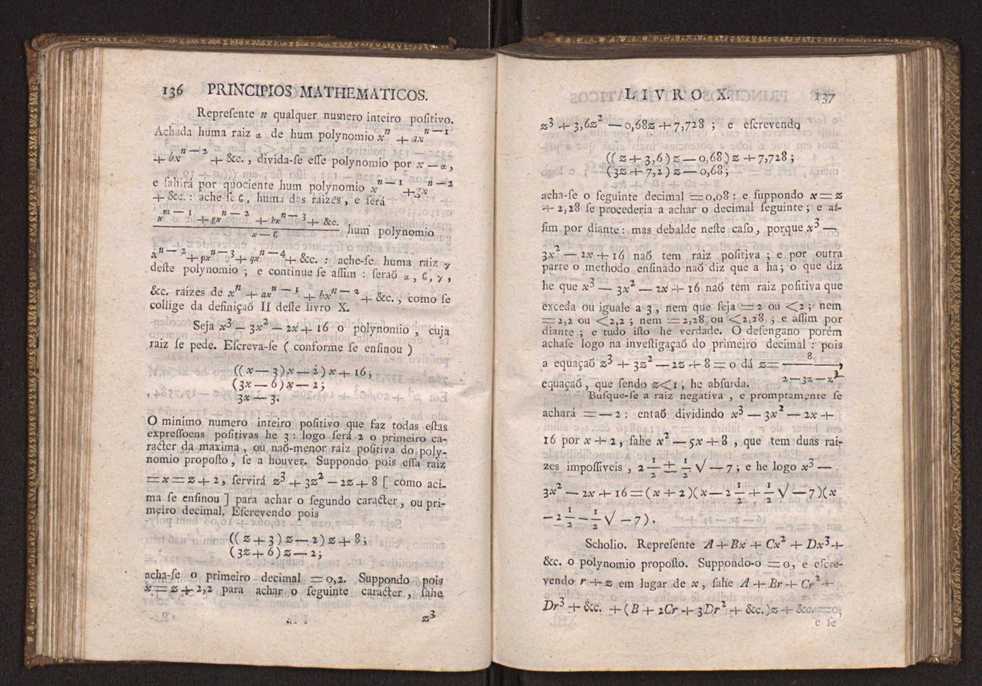 136 PRINCIPIOS MATHEMATICOS.
Repreſente n qualquer numero inteiro poſitivo.
Achada huma raiz α de hum polynomio xⁿ + axⁿ⁻¹
+ bxⁿ⁻² + &c., divida-ſe eſſe polynomio por x — α,
e ſahirá por quociente hum polynomio xⁿ⁻¹ + gxⁿ⁻²
+ &c. : ache-ſe ϐ, huma das raizes, e ſerá
xⁿ⁻¹ + gxⁿ⁻² + hxⁿ⁻³ + &c.
x — ϐ hum polynomio
xⁿ⁻² + pxⁿ⁻³ + qxⁿ⁻⁴ + &c. : ache-ſe huma raiz γ
deſte polynomio ; e continue ſe aſſim : ſeraõ α, ϐ, γ,
&c. raizes de xⁿ + axⁿ⁻¹ + bxⁿ⁻² + &c., como ſe
collige da definiçaõ II deſte livro X.
Seja x³ — 3x² — 2x + 16 o polynomio , cuja
raiz ſe pede. Eſcreva-ſe ( conforme ſe enſinou )
((x — 3)x — 2)x + 16;
(3x — 6)x — 2;
3x — 3.
O minimo numero inteiro poſitivo que faz todas eſtas
expreſſoens poſitivas he 3 : logo ſerá 2 o primeiro ca-
racter da maxima, ou naõ-menor raiz poſitiva do poly-
nomio propoſto, ſe a houver. Suppondo pois eſſa raiz
= x = z + 2, ſervirá z³ + 3z² — 2z + 8 [ como aci-
ma ſe enſinou ] para achar o ſegundo caracter, ou pri-
meiro decimal. Eſcrevendo pois
((z + 3)z — 2)z + 8;
(3z + 6)z — 2;
acha-ſe o primeiro decimal = 0,2. Suppondo pois
x = z + 2,2 para achar o ſeguinte caracter, ſahe
z³
LIVRO X. 137
z³ + 3,6z² — 0,68z + 7,728 ; e eſcrevendo
((z + 3,6)z — 0,68)z + 7,728;
(3z + 7,2)z — 0,68;
acha-ſe o ſeguinte decimal = 0,08 : e ſuppondo x = z
+ 2,28 ſe procederia a achar o decimal ſeguinte ; e aſ-
ſim por diante : mas debalde neſte caſo, porque x³ —
3x² — 2x + 16 naõ tem raiz poſitiva ; e por outra
parte o methodo enſinado naõ diz que a ha; o que diz
he que x³ — 3x² — 2x + 16 naõ tem raiz poſitiva que
exceda ou iguale a 3, nem que ſeja = 2 ou < 2; nem
= 2,2 ou < 2,2 ; nem = 2,28 ou < 2,28 ; e aſſim por
diante ; e tudo iſſo he verdade. O deſengano porém
achaſe logo na inveſtigaçaõ do primeiro decimal : pois
a equaçaõ z³ + 3z² — 2z + 8 = 0 dá z = 8,
2 — 3z — z²
equaçaõ, que ſendo z < 1, he abſurda.
Buſque-ſe a raiz negativa , e promptamente ſe
achará = — 2 : entaõ dividindo x³ — 3x² — 2x +
16 por x + 2, ſahe x² — 5x + 8 , que tem duas rai-
zes impoſſiveis, 2 1/2 ± 1/2 √ — 7 ; e he logo x³ —
3x² — 2x + 16 = (x + 2)(x — 2 1/2 + 1/2 √ — 7)(x
— 2 1/2 — 1/2 √ — 7).
Scholio. Repreſente A + Bx + Cx² + Dx³ +
&c. o polynomio propoſto. Suppondo-o = 0, e eſcre-
vendo r + z em lugar de x, ſahe A + Br + Cr² +
Dr³ + &c. + (B + 2Cr + 3Dr² + &c.)z + &c. = 0,
e ſe